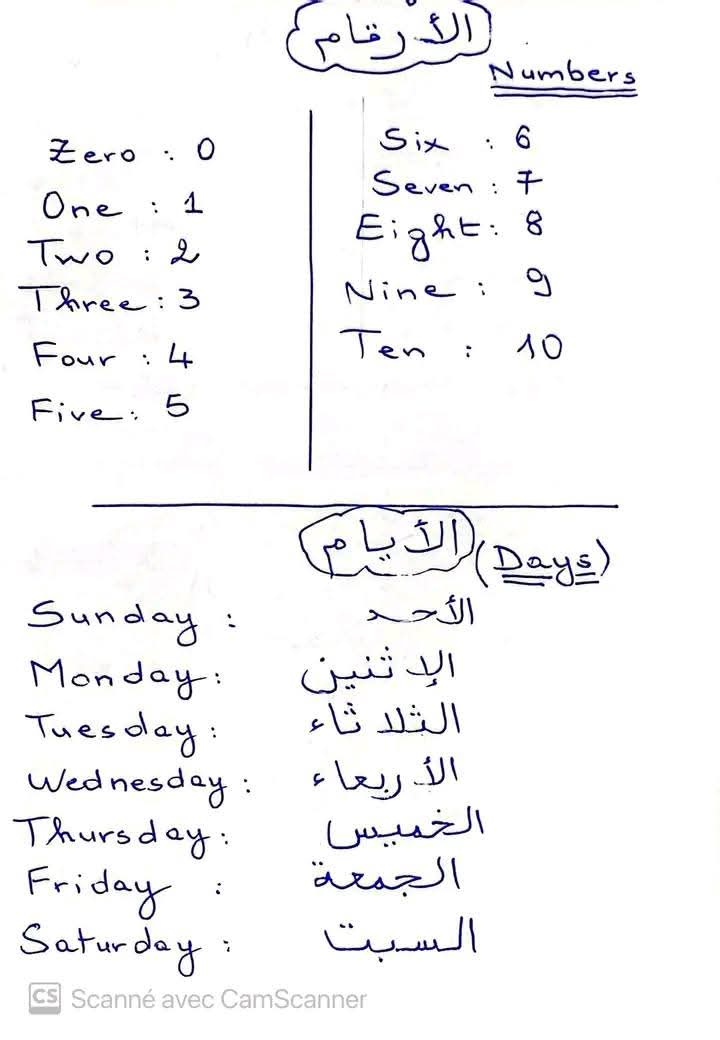 الأرقام
Numbers
Zero : 0
One : 1
Two : 2
Three : 3
Four : 4
Five : 5
Six : 6
Seven : 7
Eight : 8
Nine : 9
Ten : 10
الأيام (Days)
Sunday : الأحد
Monday : الإثنين
Tuesday : الثلاثاء
Wednesday : الأربعاء
Thursday : الخميس
Friday : الجمعة
Saturday : السبت
CS Scanné avec CamScanner